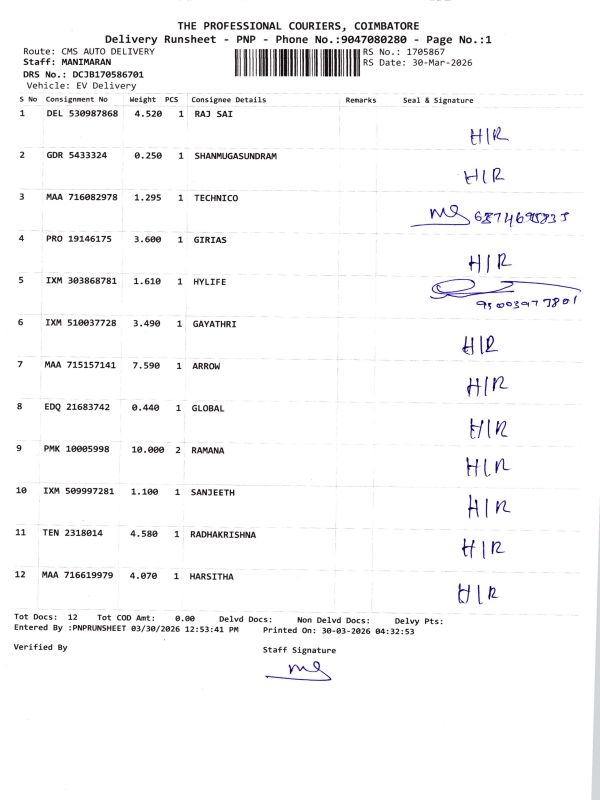 THE PROFESSIONAL COURIERS, COIMBATORE
Delivery Runsheet - PNP - Phone No.:9047080280 - Page No.:1
Route: CMS AUTO DELIVERY RS No.: 1705867
Staff: MANIMARAN RS Date: 30-Mar-2026
DRS No.: DCJB170586701
Vehicle: EV Delivery
S No Consignment No Weight PCS Consignee Details Remarks Seal & Signature
1 DEL 530987868 4.520 1 RAJ SAI
H/R
2 GDR 5433324 0.250 1 SHANMUGASUNDRAM
H/R
3 MAA 716082978 1.295 1 TECHNICO
4 PRO 19146175 3.600 1 GIRIAS
H/R
5 IXM 303868781 1.610 1 HYLIFE
6 IXM 510037728 3.490 1 GAYATHRI
H/R
7 MAA 715157141 7.590 1 ARROW
H/R
8 EDQ 21683742 0.440 1 GLOBAL
H/R
9 PMK 10005998 10.000 2 RAMANA
H/R
10 IXM 509997281 1.100 1 SANJEETH
H/R
11 TEN 2318014 4.580 1 RADHAKRISHNA
H/R
12 MAA 716619979 4.070 1 HARSITHA
H/R
Tot Docs: 12 Tot COD Amt: 0.00 Delvd Docs: Non Delvd Docs: Delvy Pts:
Entered By :PNPRUNSHEET 03/30/2026 12:53:41 PM Printed On: 30-03-2026 04:32:53
Verified By Staff Signature